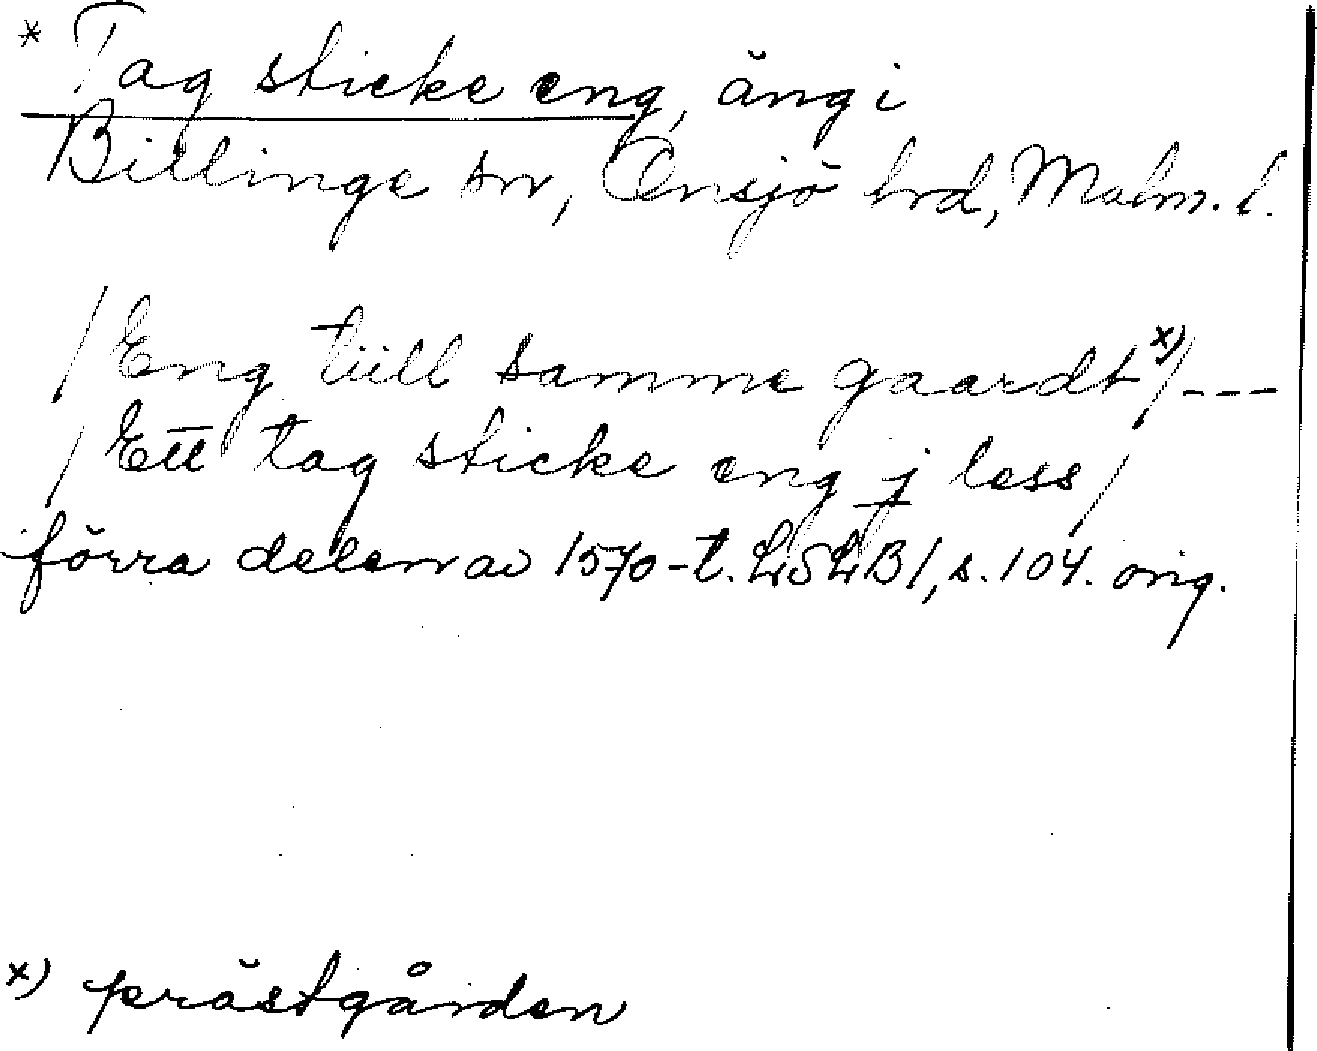 * Tag sticke eng, äng i
Billinge sn, Onsjö hrd, Malm. l.
/Eng tüll samme gaardt x)/---
/Ett tag sticke eng j less/
förra delen av 1570-t. LSLB1, s. 104. orig.
x) prästgården